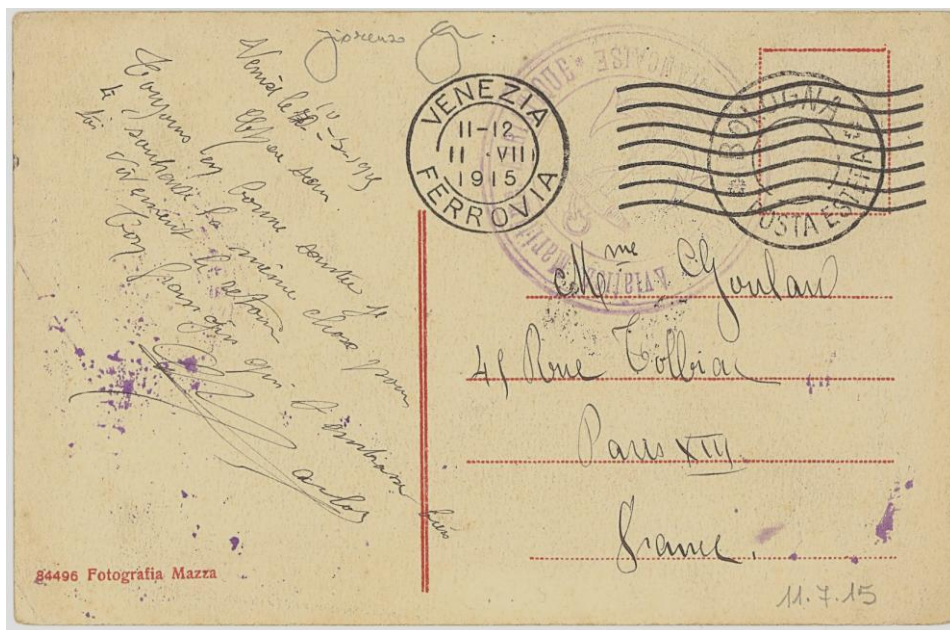 Venise le 10-7-1915
Chère
Toujours en bonne santée je
te souhaite la même chose pour
toi vivement le retour
Ton françois qui t'embrasse bien
VENEZIA
11-12
11 VII
1915
FERROVIA
BOLOGNA
POSTA ESTERA
FRANÇAISE
Mme Goulard
45 Rue Tolbiac
Paris XIII
France.
84496 Fotografia Mazza
11.7.15